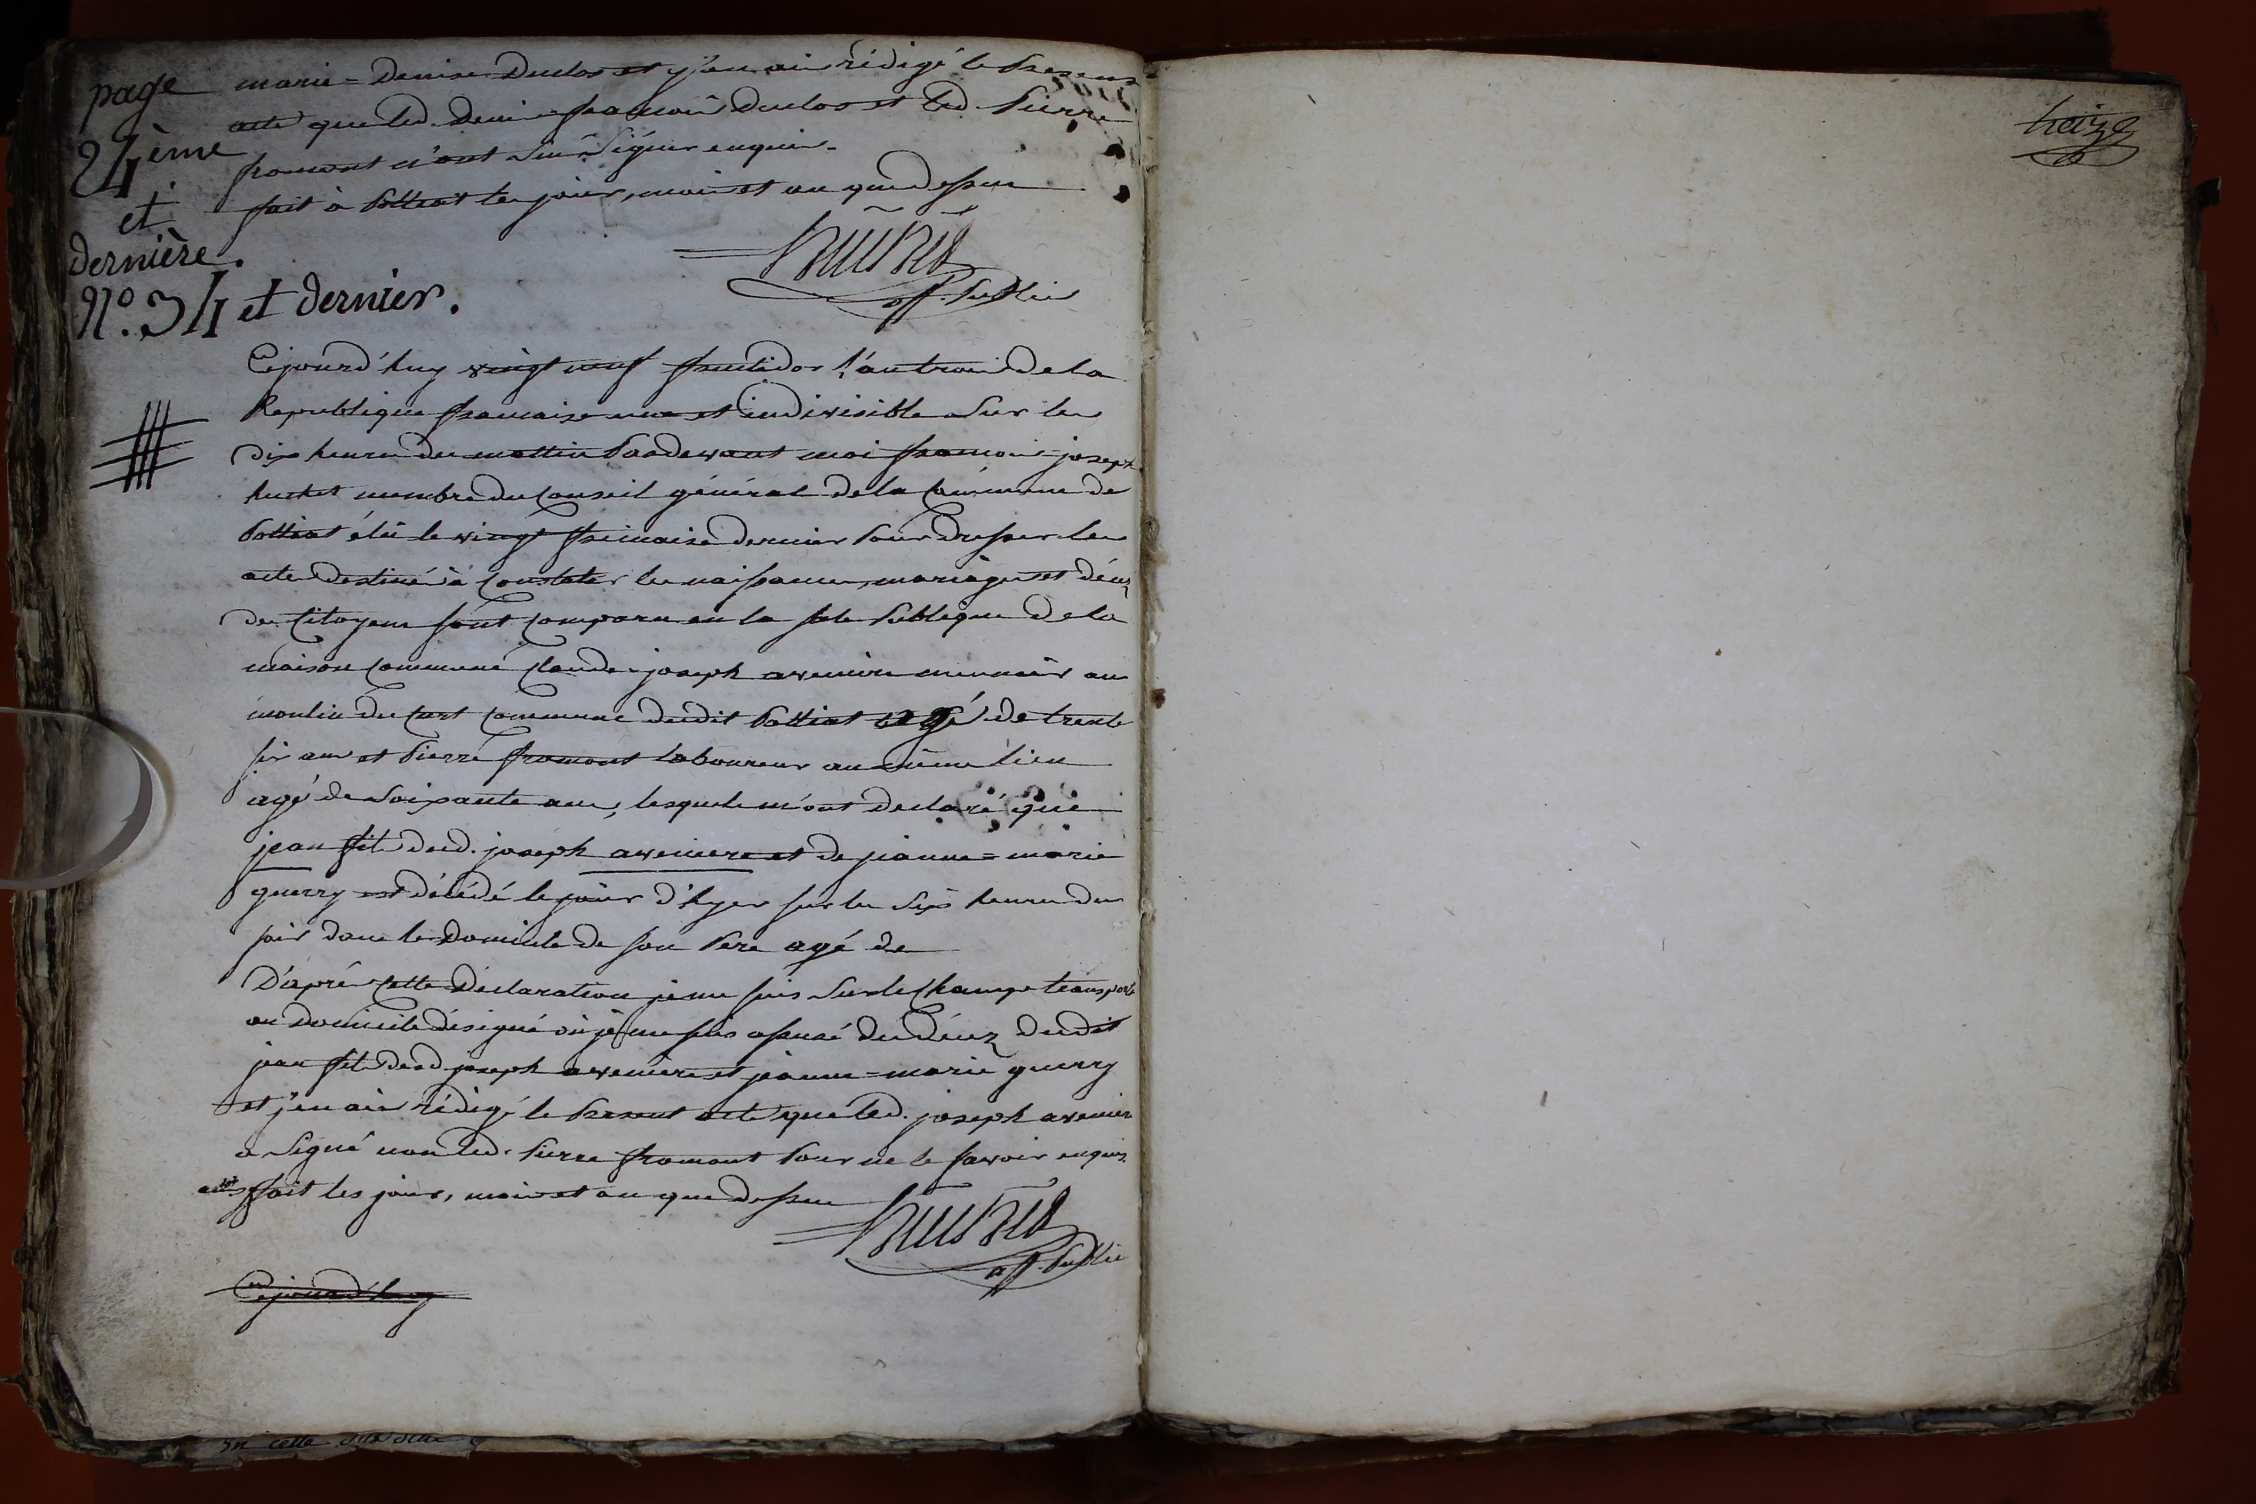 page
24ème
et
dernière.
marie=Denise Duclos et j'en ai rédigé le present
acte que led. Denis françois Duclos et led. Pierre
fromont n'ont sçu signer enquis.
fait à Polliat les jour, mois et an que dessus
huchet
off. Public
N°. 34 et dernier.
Cejourd'huy vingt neuf fructidor l'an trois de la
Republique francaise une et indivisible sur les
dix heures du mattin Pardevant moi françois joseph
huchet membre du Conseil général de la Commune de
Polliat élû le vingt frimaire dernier Pour dresser les
actes destinés à Constater les naissances, mariages et décez
des Citoyens sont comparu en la sale Publique de la
maison commune Claude joseph aveniere meunier au
moulin du Cart commune dudit Polliat agé de trente
six ans et Pierre fromont laboureur au même lieu
agé de soixante ans, lesquels m'ont déclaré que
jean fils dud. joseph aveniere et de jeanne=marie
guerry est décédé le jour d'hyer sur les six heures du
soir dans le Domicile de son Pere agé de
D'après cette déclaration je me suis sur le champ transporté
au Domicile désigné où je me suis assuré du décez dudit
jean fils dud joseph aveniere et jeanne=marie guerry
et j'en ai rédigé le Present acte que led. joseph aveniere
a signé non led. Pierre fromont Pour ne le savoir enquis.
fait les jour, mois et an que dessus
huchet
off. Public
Cejourd'huy
treize